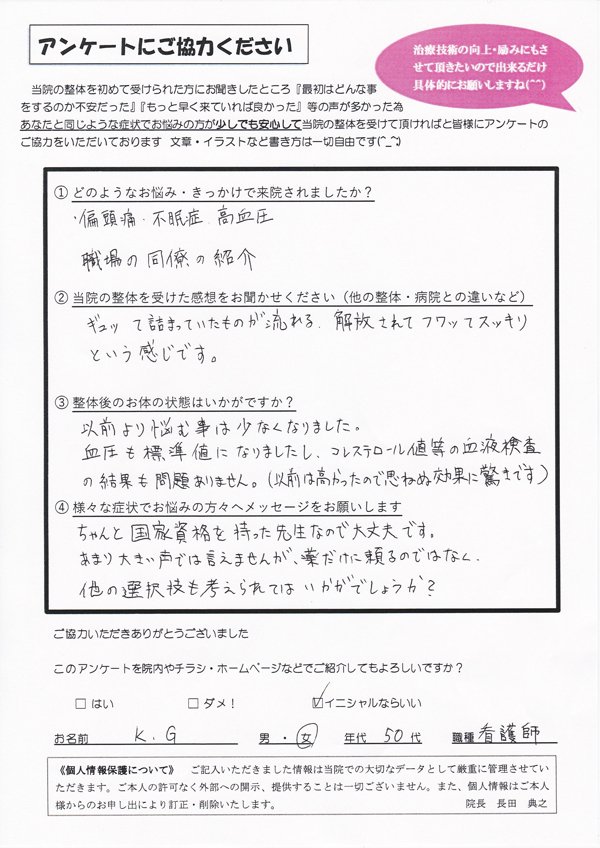 アンケートにご協力ください
治療技術の向上・励みにもさ
せて頂きたいので出来るだけ
具体的にお願いしますね(^^)
当院の整体を初めて受けられた方にお聞きしたところ『最初はどんな事
をするのか不安だった』『もっと早く来ていれば良かった』等の声が多かった為
あなたと同じような症状でお悩みの方が少しでも安心して当院の整体を受けて頂ければと皆様にアンケートの
ご協力をいただいております 文章・イラストなど書き方は一切自由です(^_^;)
① どのようなお悩み・きっかけで来院されましたか？
・偏頭痛・不眠症、高血圧
職場の同僚の紹介
② 当院の整体を受けた感想をお聞かせください（他の整体・病院との違いなど）
ギュッて詰まっていたものが流れる、解放されてフワッてスッキリ
という感じです。
③ 整体後のお体の状態はいかがですか？
以前より悩む事は少なくなりました。
血圧も標準値になりましたし、コレステロール値等の血液検査
の結果も問題ありません。（以前は高かったので思わぬ効果に驚きです）
④ 様々な症状でお悩みの方々へメッセージをお願いします
ちゃんと国家資格を持った先生なので大丈夫です。
あまり大きい声では言えませんが、薬だけに頼るのではなく、
他の選択技も考えられてはいかがでしょうか？
ご協力いただきありがとうございました
このアンケートを院内やチラシ・ホームページなどでご紹介してもよろしいですか？
□ はい □ ダメ！ ☑ イニシャルならいい
お名前 K.G 男・女 年代 50代 職種 看護師
《個人情報保護について》 ご記入いただきました情報は当院での大切なデータとして厳重に管理させてい
ただきます。ご本人の許可なく外部への開示、提供することは一切ございません。また、個人情報はご本人
様からのお申し出により訂正・削除いたします。 院長 長田 典之